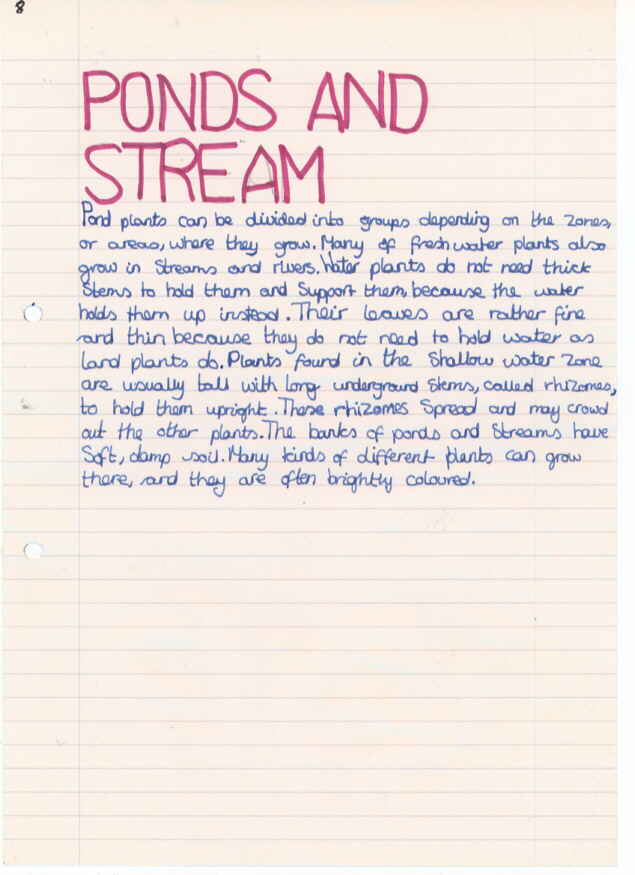 8
PONDS AND
STREAM
Pond plants can be divided into groups depending on the zones,
or areas, where they grow. Many of freshwater plants also
grow in streams and rivers. Water plants do not need thick
stems to hold them and support them, because the water
holds them up instead. Their leaves are rather fine
and thin because they do not need to hold water as
land plants do. Plants found in the shallow water zone
are usually tall with long underground stems, called rhizomes,
to hold them upright. These rhizomes spread and may crowd
out the other plants. The banks of ponds and streams have
soft, damp soil. Many kinds of different plants can grow
there, and they are often brightly coloured.